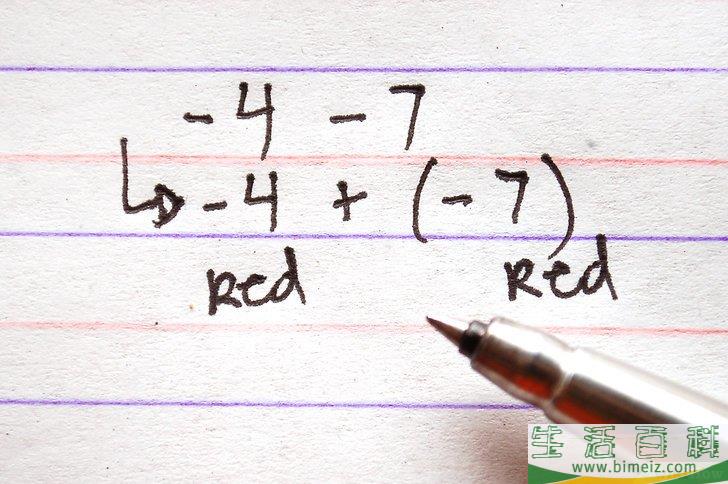 -4 - 7
-4 + (-7)
Red Red
生活百科
www.bimeiz.com